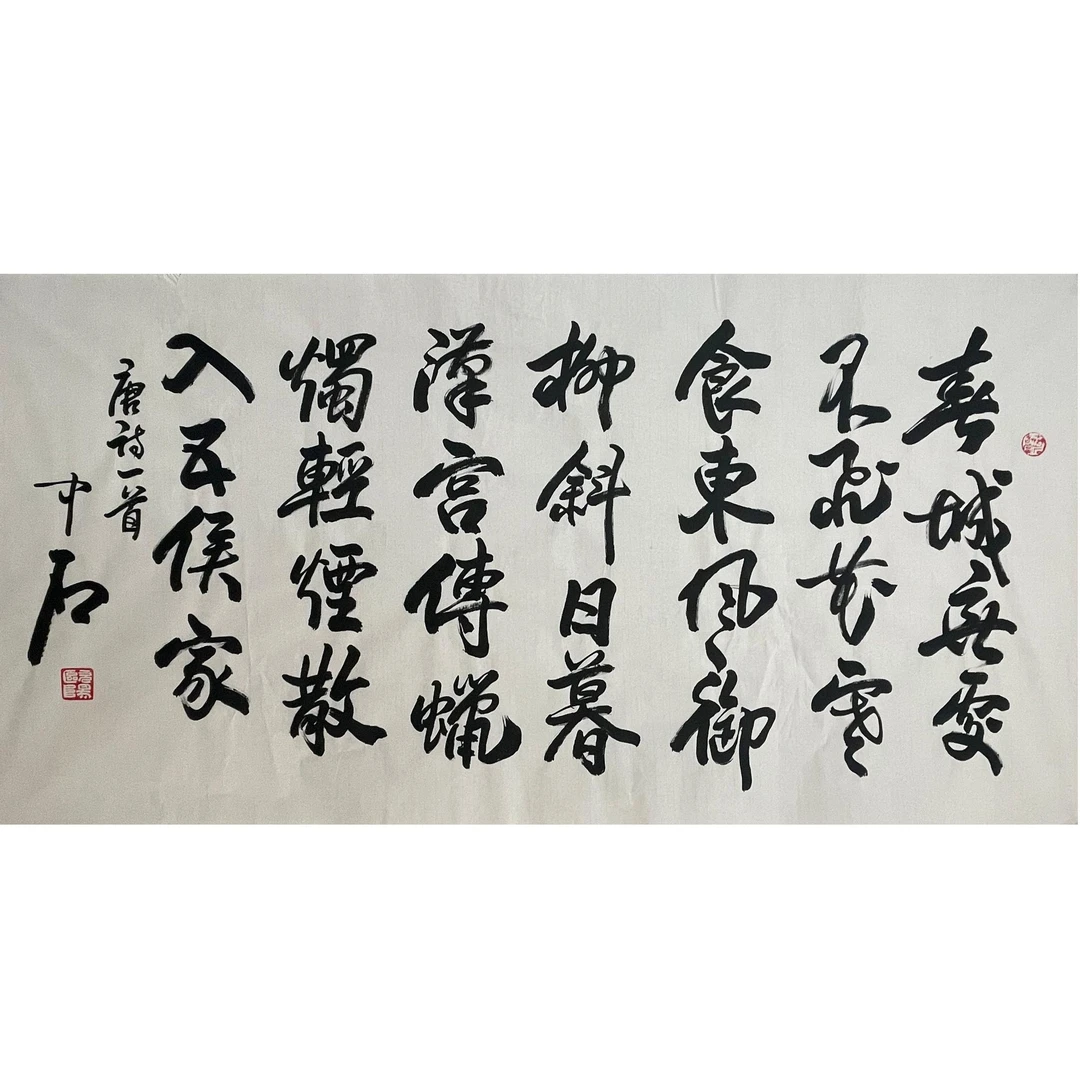 春城無處
不飛花寒
食東風御
柳斜日暮
漢宮傳蠟
燭輕煙散
入五侯家
唐詩一首
中石